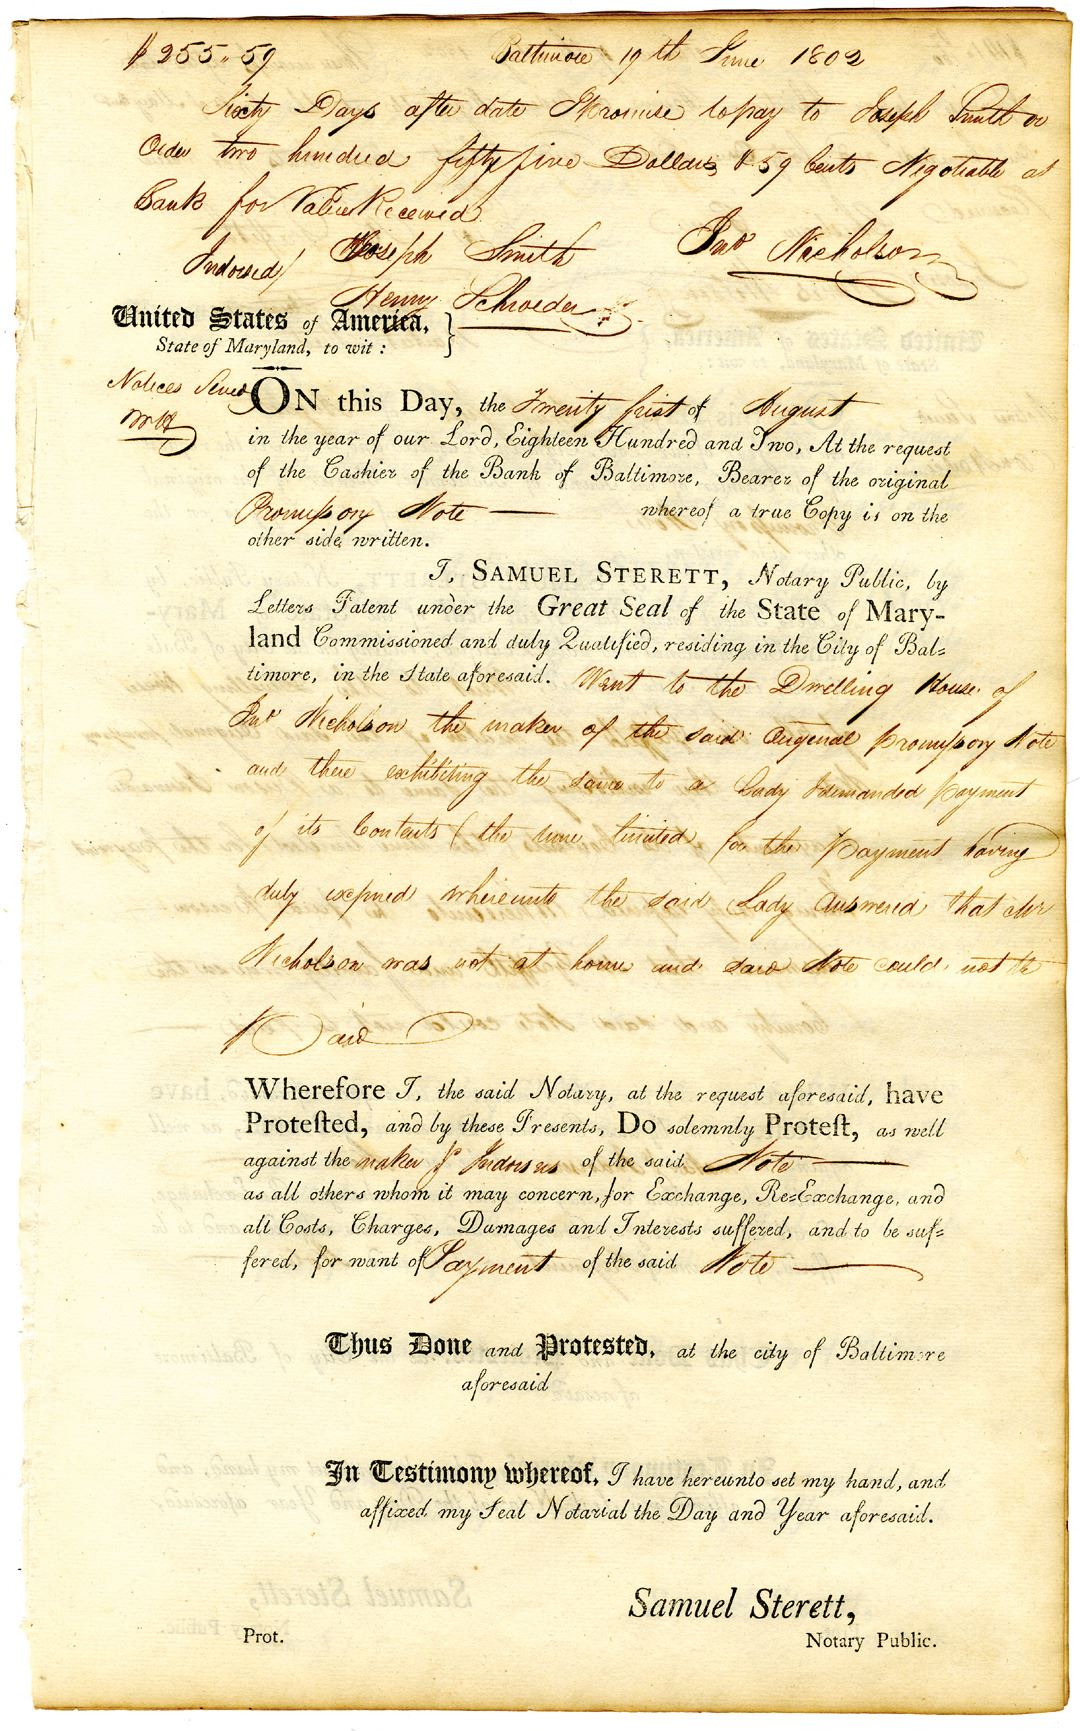 $255.59 Baltimore 19th June 1802
Sixty Days after date I promise to pay to Joseph Smith or
Order two hundred fifty five Dollars & 59 Cents Negotiable at
Bank for Value Received
Jno Nicholson
Indorsed/ Joseph Smith
Henry Schroeder
United States of America,
State of Maryland, to wit :
Notices Served
ON this Day, the Twenty first of August
in the year of our Lord, Eighteen Hundred and Two, At the request
of the Cashier of the Bank of Baltimore, Bearer of the original
Promissory Note — whereof a true Copy is on the
other side written.
I, SAMUEL STERETT, Notary Public, by
Letters Patent under the Great Seal of the State of Mary-
land Commissioned and duly Qualified, residing in the City of Bal-
timore, in the State aforesaid. Went to the Dwelling House of
Jno Nicholson the maker of the said Original promissory Note
and there exhibiting the same to a Lady I demanded payment
of its Contents (the time limited for the Payment having
duly expired whereunto the said Lady Answered that Mr
Nicholson was not at home and said Note could not be
Paid
Wherefore I, the said Notary, at the request aforesaid, have
Proteſted, and by these Presents, Do solemnly Proteſt, as well
against the maker & Indorsers of the said Note —
as all others whom it may concern, for Exchange, Re-Exchange, and
all Costs, Charges, Damages and Interests suffered, and to be suf-
fered, for want of Payment of the said Note —
Thus Done and Protested, at the city of Baltimore
aforesaid
In Testimony whereof, I have hereunto set my hand, and
affixed my Seal Notarial the Day and Year aforesaid.
Samuel Sterett,
Prot. Notary Public.